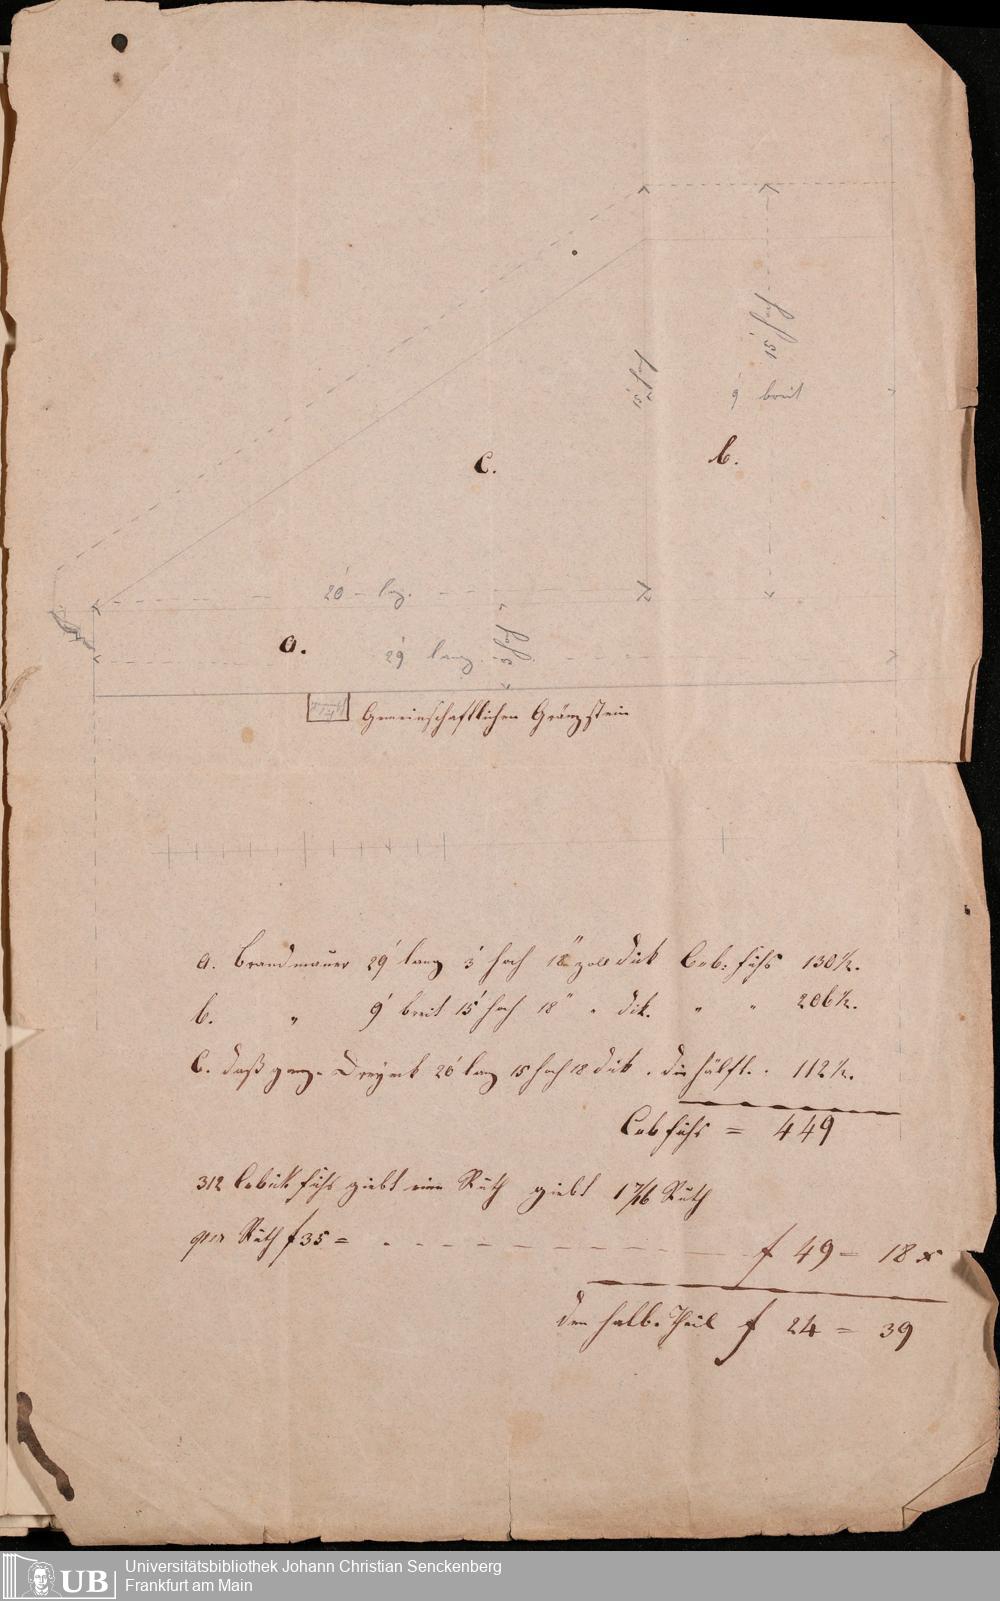 15' hoch
15' hoch
9' breit
C.
b.
20' lg.
a.
29' lang
3' hoch
Gemeinschaftlichen Gränzstein
a. Brandmauer 29' lang 3' hoch 18" zoll dick Cub: fuhs 130½.
b. " 9' breit 15' hoch 18" " dik. " " 206½.
C. daß ganze Dreyeck 20' lang 15 hoch 18 dick. die hälft. . 112½.
Cub fuhs = 449
312 Cubick fuhs giebt eine Ruth giebt 1 7/16 Ruth
per Ruth f 35 =
f 49 – 18 x
den halb. Theil f 24 = 39
UB
Universitätsbibliothek Johann Christian Senckenberg
Frankfurt am Main